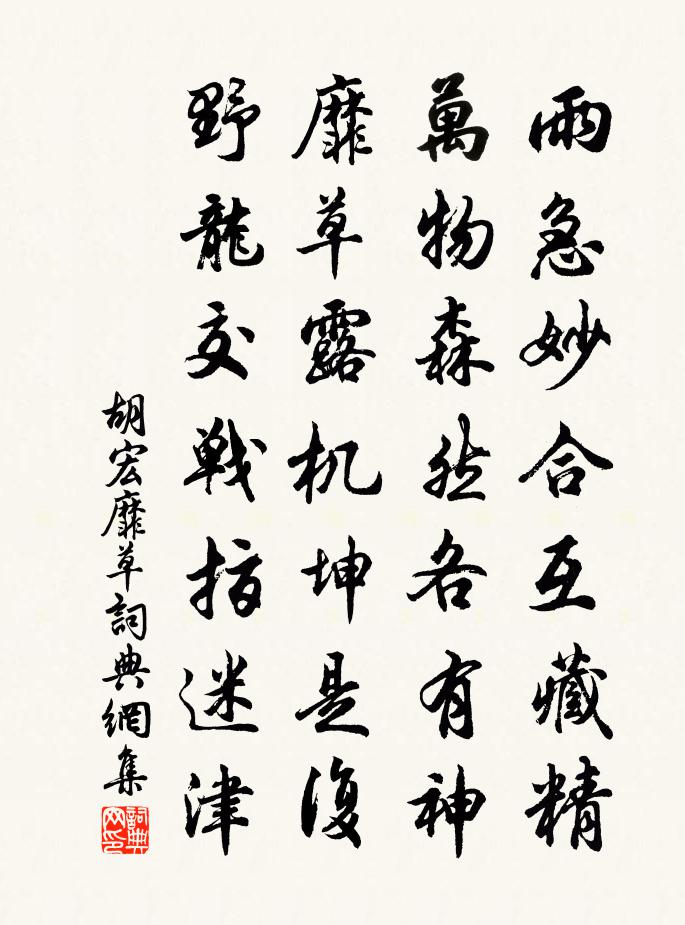 雨急妙合互藏精
萬物森然各有神
靡草露机坤是復
野龍交戰指迷津
胡宏靡草詞典網集
詞典网印